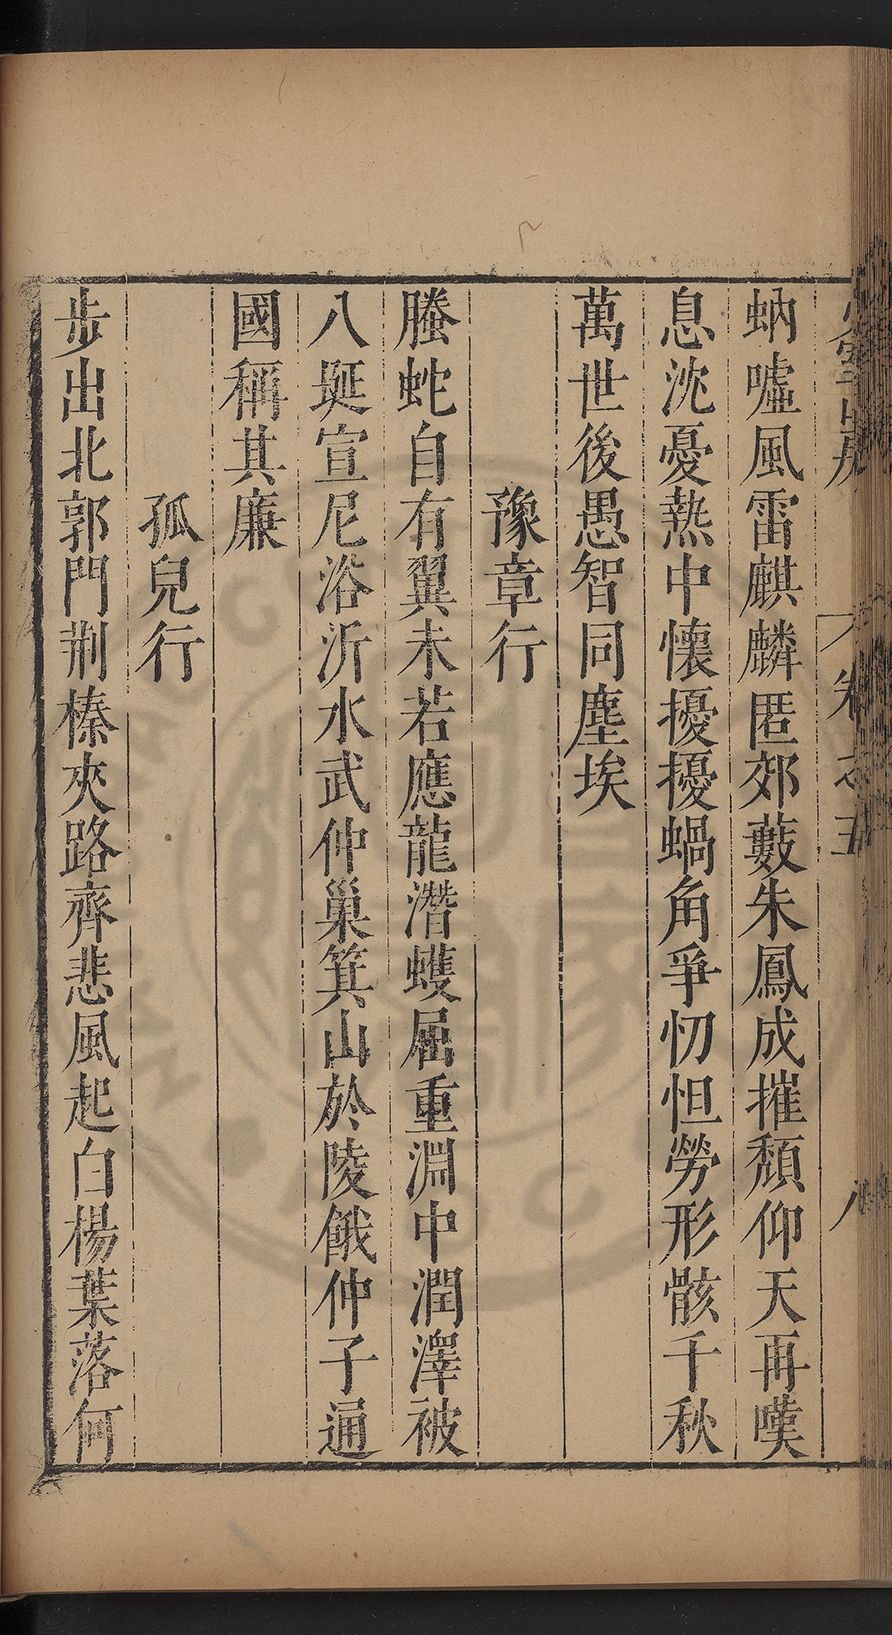 卷之五
八
蚋噓風雷麒麟匿郊藪朱鳳成摧頹仰天再嘆
息沈憂熱中懷擾擾蝸角爭忉怛勞形骸千秋
萬世後愚智同塵埃
豫章行
螣蛇自有翼未若應龍潛蠖屈重淵中潤澤被
八埏宣尼浴沂水武仲巢箕山於陵餓仲子通
國稱其廉
孤兒行
步出北郭門荆榛夾路齊悲風起白楊葉落何